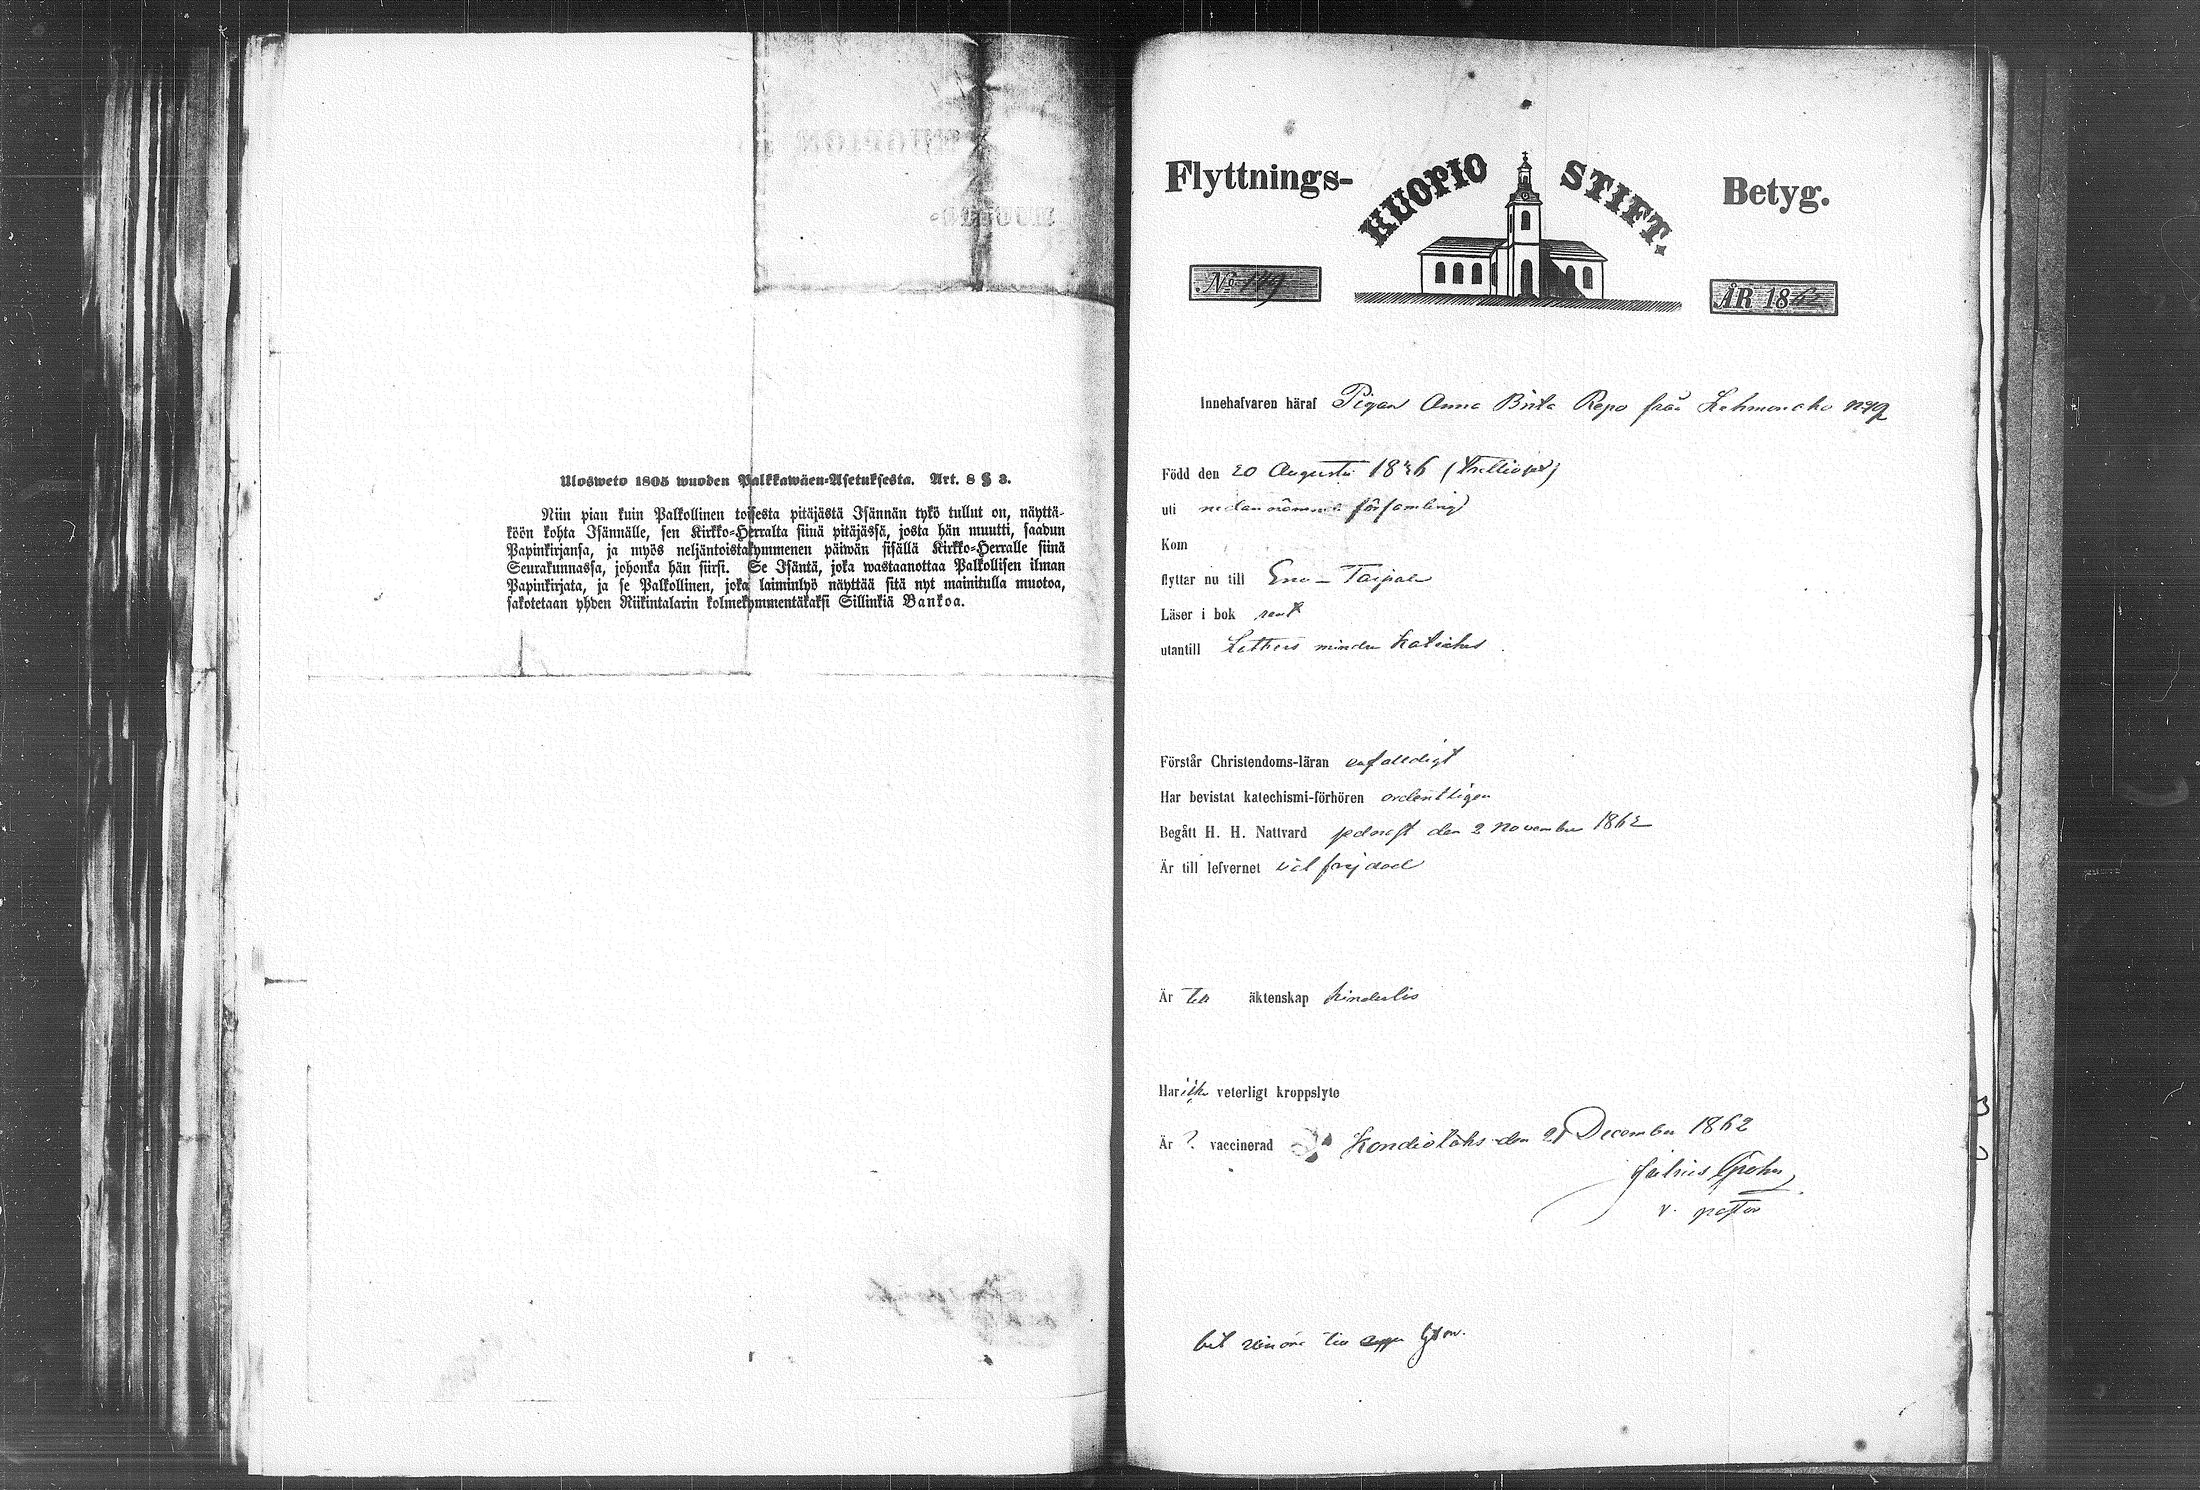 Ulosweto 1805 wuoden Palkkawäen-Asetuksesta. Art. 8 § 3.
Niin pian kuin Palkollinen toisesta pitäjästä Isännän tykö tullut on, näyttä-
köön kohta Isännälle, sen Kirkko-Herralta siinä pitäjässä, josta hän muutti, saadun
Papinkirjansa, ja myös neljäntoistakymmenen päiwän sisällä Kirkko-Herralle siinä
Seurakunnassa, johonka hän siirsi. Se Isäntä, joka wastaanottaa Palkollisen ilman
Papinkirjata, ja se Palkollinen, joka laiminlyö näyttää sitä nyt mainitulla muotoa,
sakotetaan yhden Riikintalarin kolmekymmentäkaksi Sillinkiä Bankoa.
Flyttnings- KUOPIO STIFT. Betyg.
No 149 ÅR 1862
Innehafvaren häraf Pigan Anna Brita Repo från
Född den 20 Augusti
uti nedannämnde församling
Kom
flyttar nu till Eno - Taipale
Läser i bok rent
utantill Luthers mindre Kateches
Förstår Christendoms-läran enfalldigt
Har bevistat katechismi-förhören ordentligen
Begått H. H. Nattvard sednast den 2 November 1862
Är till lefvernet väl frejdad
Är till äktenskap hinderlös
Har icke veterligt kroppslyte
Är ? vaccinerad Kondiolaks den 21 December 1862
Julius
v. pastor